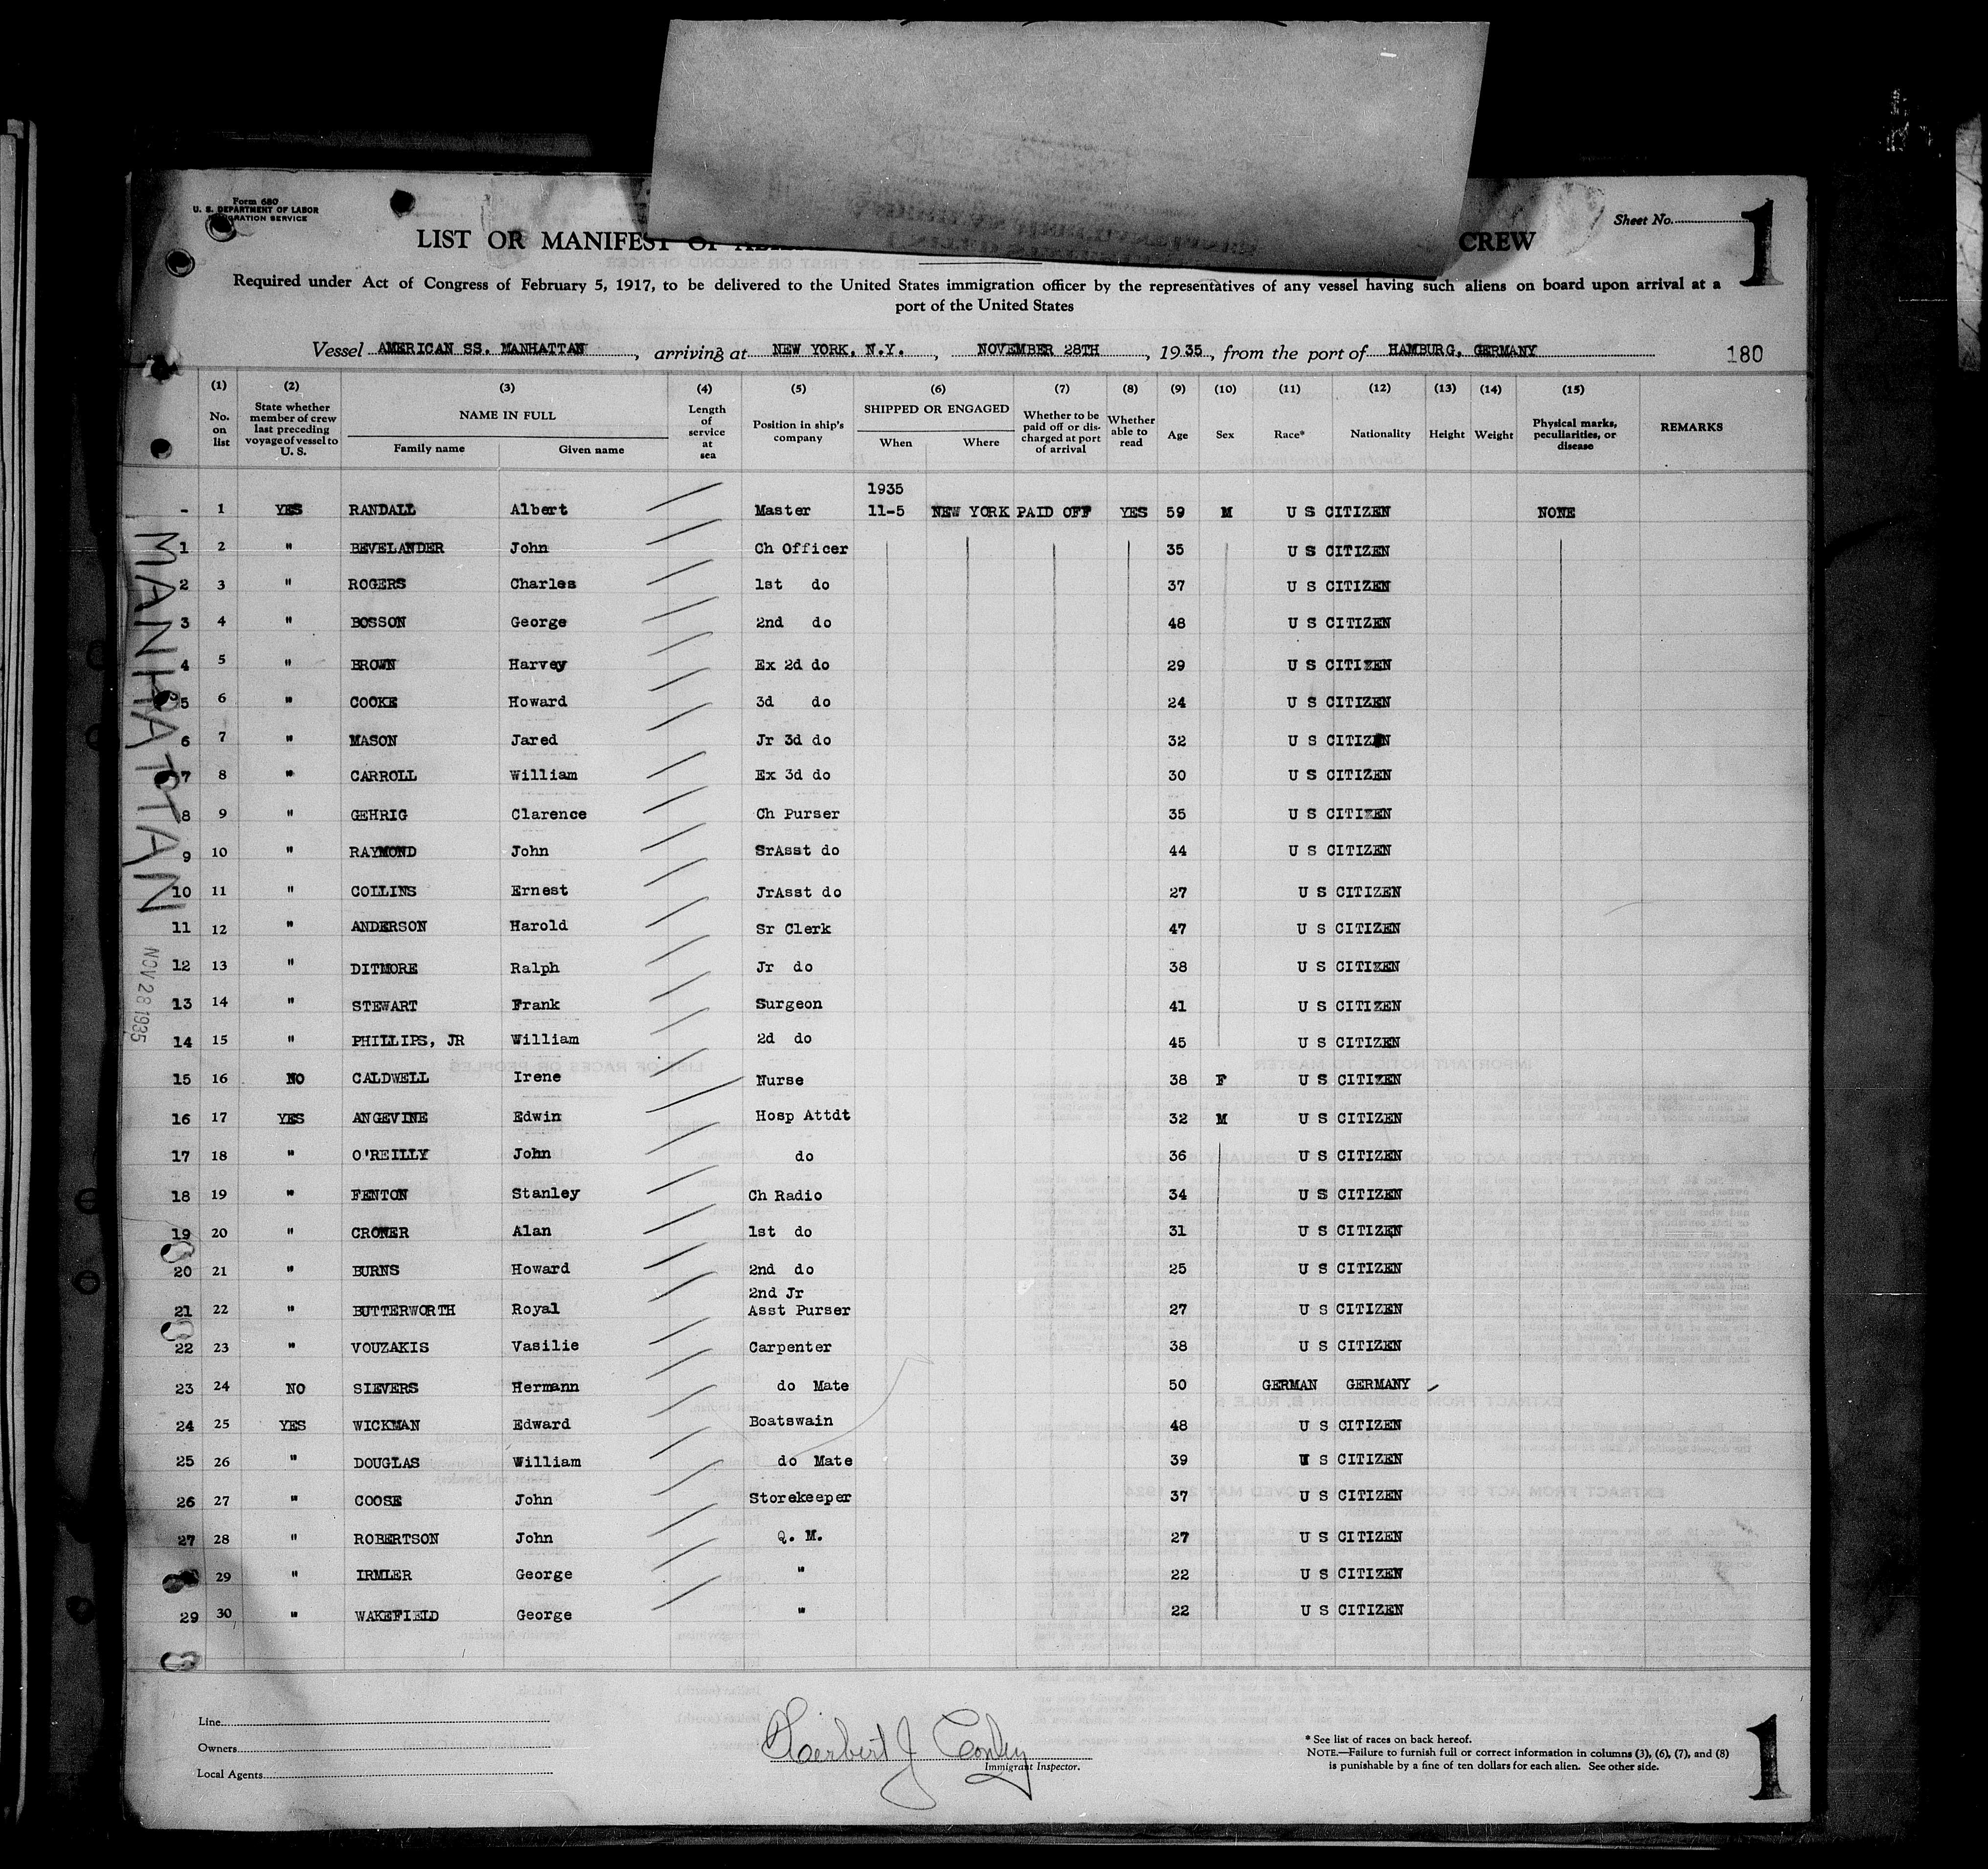 Form 680
U. S. DEPARTMENT OF LABOR
IMMIGRATION SERVICE
Sheet No.
1
LIST OR MANIFEST OF CREW
Required under Act of Congress of February 5, 1917, to be delivered to the United States immigration officer by the representatives of any vessel having such aliens on board upon arrival at a
port of the United States
Vessel AMERICAN SS. MANHATTAN, arriving at NEW YORK, N.Y., NOVEMBER 28TH, 1935, from the port of HAMBURG, GERMANY 180
(1) (2) (3) (4) (5) (6) (7) (8) (9) (10) (11) (12) (13) (14) (15)
No. on list State whether member of crew last preceding voyage of vessel to U. S. NAME IN FULL Family name Given name Length of service at sea Position in ship's company SHIPPED OR ENGAGED When Where Whether to be paid off or discharged at port of arrival Whether able to read Age Sex Race* Nationality Height Weight Physical marks, peculiarities, or disease REMARKS
1935
- 1 YES RANDALL Albert Master 11-5 NEW YORK PAID OFF YES 59 M U S CITIZEN NONE
1 2 " BEVELANDER John Ch Officer 35 U S CITIZEN
2 3 " ROGERS Charles 1st do 37 U S CITIZEN
3 4 " BOSSON George 2nd do 48 U S CITIZEN
4 5 " BROWN Harvey Ex 2d do 29 U S CITIZEN
5 6 " COOKE Howard 3d do 24 U S CITIZEN
6 7 " MASON Jared Jr 3d do 32 U S CITIZEN
7 8 " CARROLL William Ex 3d do 30 U S CITIZEN
8 9 " GEHRIG Clarence Ch Purser 35 U S CITIZEN
9 10 " RAYMOND John SrAsst do 44 U S CITIZEN
10 11 " COLLINS Ernest JrAsst do 27 U S CITIZEN
11 12 " ANDERSON Harold Sr Clerk 47 U S CITIZEN
12 13 " DITMORE Ralph Jr do 38 U S CITIZEN
13 14 " STEWART Frank Surgeon 41 U S CITIZEN
14 15 " PHILLIPS, JR William 2d do 45 U S CITIZEN
15 16 NO CALDWELL Irene Nurse 38 F U S CITIZEN
16 17 YES ANGEVINE Edwin Hosp Attdt 32 M U S CITIZEN
17 18 " O'REILLY John do 36 U S CITIZEN
18 19 " FENTON Stanley Ch Radio 34 U S CITIZEN
19 20 " CROMER Alan 1st do 31 U S CITIZEN
20 21 " BURNS Howard 2nd do 25 U S CITIZEN
2nd Jr
21 22 " BUTTERWORTH Royal Asst Purser 27 U S CITIZEN
22 23 " VOUZAKIS Vasilie Carpenter 38 U S CITIZEN
23 24 NO SIEVERS Hermann do Mate 50 GERMAN GERMANY
24 25 YES WICKMAN Edward Boatswain 48 U S CITIZEN
25 26 " DOUGLAS William do Mate 39 U S CITIZEN
26 27 " COOSE John Storekeeper 37 U S CITIZEN
27 28 " ROBERTSON John Q. M. 27 U S CITIZEN
29 " IRMLER George " 22 U S CITIZEN
29 30 " WAKEFIELD George " 22 U S CITIZEN
MANHATTAN
NOV 28 1935
Line
Owners
Local Agents
Herbert J Conley
Immigrant Inspector.
* See list of races on back hereof.
NOTE.—Failure to furnish full or correct information in columns (3), (6), (7), and (8)
is punishable by a fine of ten dollars for each alien. See other side.
1